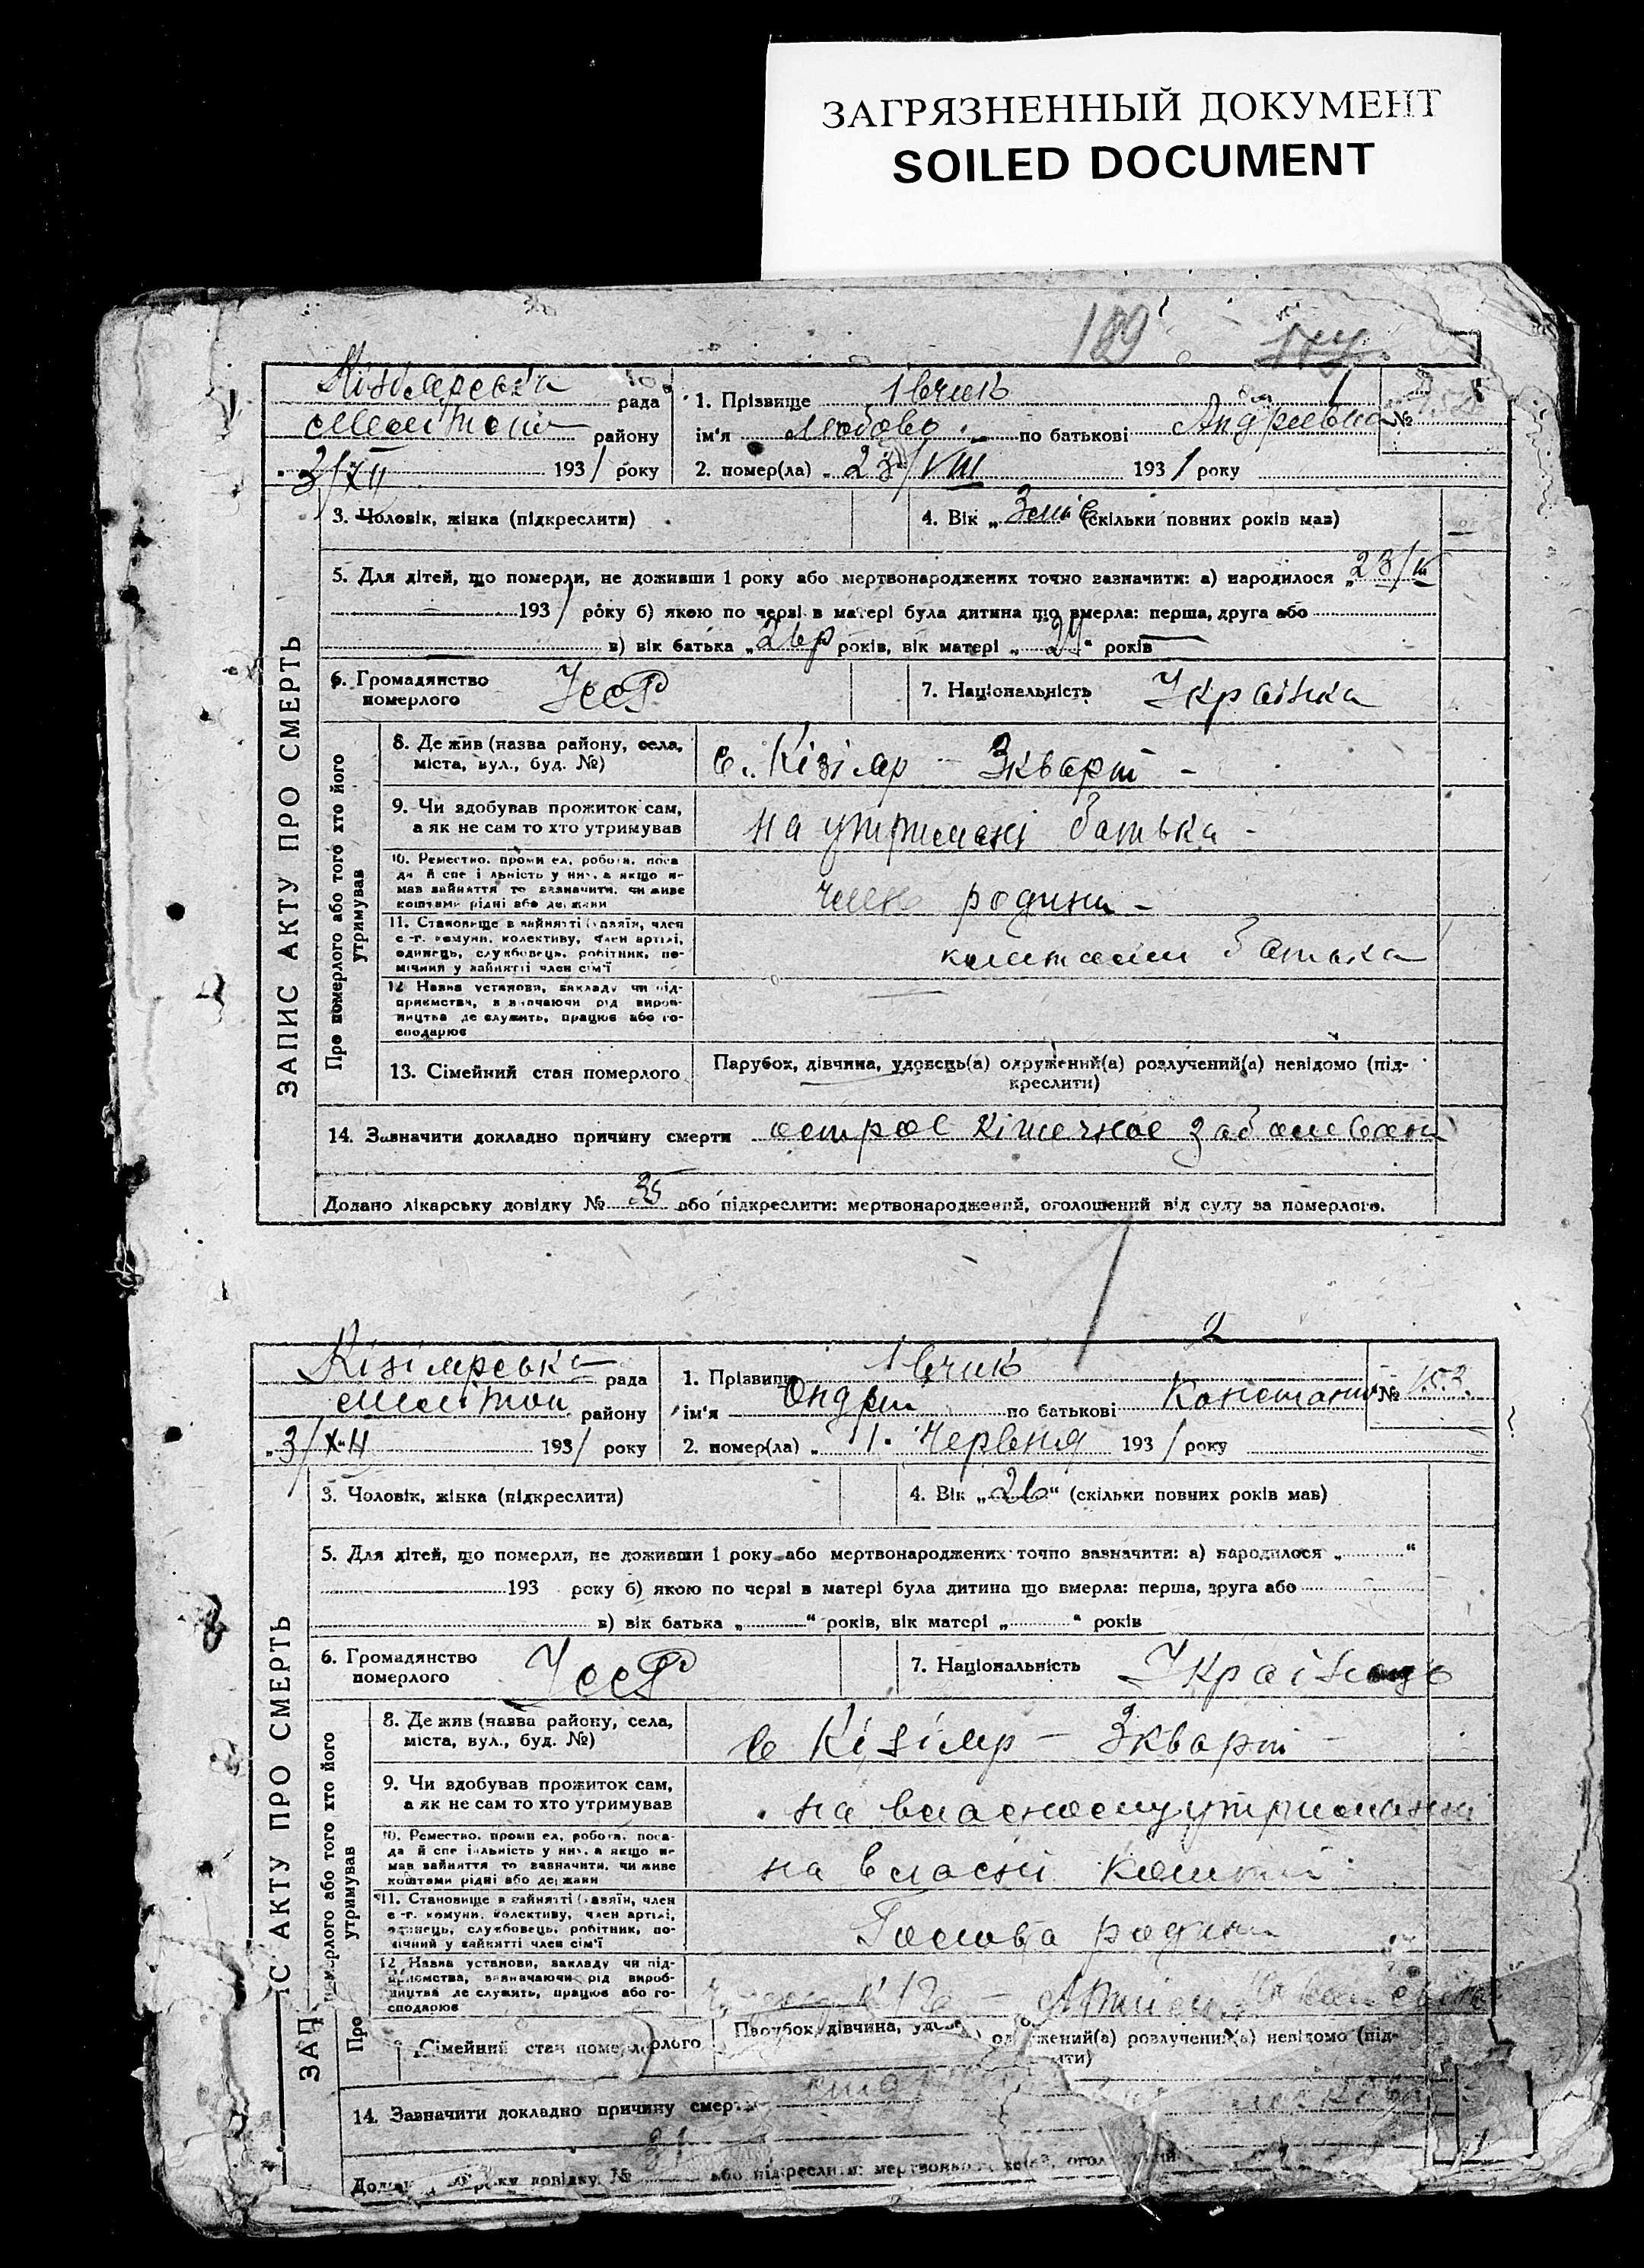 ЗАГРЯЗНЕННЫЙ ДОКУМЕНТ
SOILED DOCUMENT
189
Кізілярська рада
району
3/XII 1931 року
1. Прізвище Івчик
ім'я Любов по батькові Андріївна №
2. помер(ла) „ 23/VIII 1931 року
ЗАПИС АКТУ ПРО СМЕРТЬ
3. Чоловік, жінка (підкреслити)
4. Вік „ (скільки повних років мав)
5. Для дітей, що померли, не доживши 1 року або мертвонароджених точно зазначити: а) народилося „
1931 року б) якою по черзі в матері була дитина що вмерла: перша, друга або
в) вік батька „26р років, вік матері „ “ років
6. Громадянство померлого УССР
7. Національність Українка
Про померлого або того хто його утримував
8. Де жив (назва району, села,
міста, вул., буд. №)
с. Кізіляр –
9. Чи здобував прожиток сам,
а як не сам то хто утримував
на утримані батька –
10. Ремество, промисел, робота, поса-
да й спеціальність у них, а якщо не
мав зайняття то зазначити, чи живе
коштами рідні або держави
член родини –
11. Становище в зайнятті (хазяїн, член
с.-г. комуни, колективу, член артілі,
одинець, службовець, робітник, по-
мічний у зайнятті член сім'ї
коштами батька
12. Назва установи, закладу чи під-
приємства, зазначаючи рід вироб-
ництва де служить, працює або го-
сподарює
13. Сімейний стан померлого
Парубок, дівчина, удовець(а) одружений(а) розлучений(а) невідомо (під-
креслити)
14. Зазначити докладно причину смерти острое кішечное
Додано лікарську довідку № 35 або підкреслити: мертвонароджений, оголошений від суду за померлого.
2
Кізілярська рада
району
3/XII 1931 року
1. Прізвище Івчик
ім'я Ондрій по батькові Констант № 153.
2. помер(ла) „ 1. Червня 1931 року
ЗАПИС АКТУ ПРО СМЕРТЬ
3. Чоловік, жінка (підкреслити)
4. Вік „26“ (скільки повних років мав)
5. Для дітей, що померли, не доживши 1 року або мертвонароджених точно зазначити: а) народилося „ “
193 року б) якою по черзі в матері була дитина що вмерла: перша, друга або
в) вік батька „ “ років, вік матері „ “ років
6. Громадянство померлого УССР
7. Національність Українець
Про померлого або того хто його утримував
8. Де жив (назва району, села,
міста, вул., буд. №)
с Кізіляр –
9. Чи здобував прожиток сам,
а як не сам то хто утримував
на власному утриманні
10. Ремество, промисел, робота, поса-
да й спеціальність у них, а якщо не
мав зайняття то зазначити, чи живе
коштами рідні або держави
на власні кошти
11. Становище в зайнятті (хазяїн, член
с.-г. комуни, колективу, член артілі,
одинець, службовець, робітник, по-
мічний у зайнятті член сім'ї
Голова родини
12. Назва установи, закладу чи під-
приємства, зазначаючи рід вироб-
ництва де служить, працює або го-
сподарює
Сімейний стан померлого
Парубок, дівчина, одружений(а) розлучений(а) невідомо (під-
14. Зазначити докладно причину смерти
довідку № 31 або підкреслити: